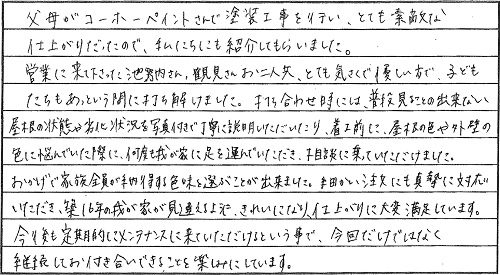 父母がコーホーペイントさんで塗装工事を行い、とても素敵な
仕上がりだったので、私たちにも紹介してもらいました。
営業に来て下さった池野内さん、鶴見さんお二人共、とても気さくで優しい方で、子ども
たちもあっという間に打ち解けました。打ち合わせ時には、普段見ることの出来ない
屋根の状態や劣化状況を写真付きで丁寧に説明いただいたり、着工前に、屋根の色や外壁の
色に悩んでいた際に、何度も我が家に足を運んでいただき、相談に乗っていただけました。
おかげで家族全員が納得する色味を選ぶことが出来ました。細かい注文にも真摯に対応
いただき、築16年の我が家が見違えるように、きれいになり、仕上がりに大変満足しています。
今後も定期的にメンテナンスに来ていただけるという事で、今回だけではなく
継続してお付き合いできることを楽しみにしています。